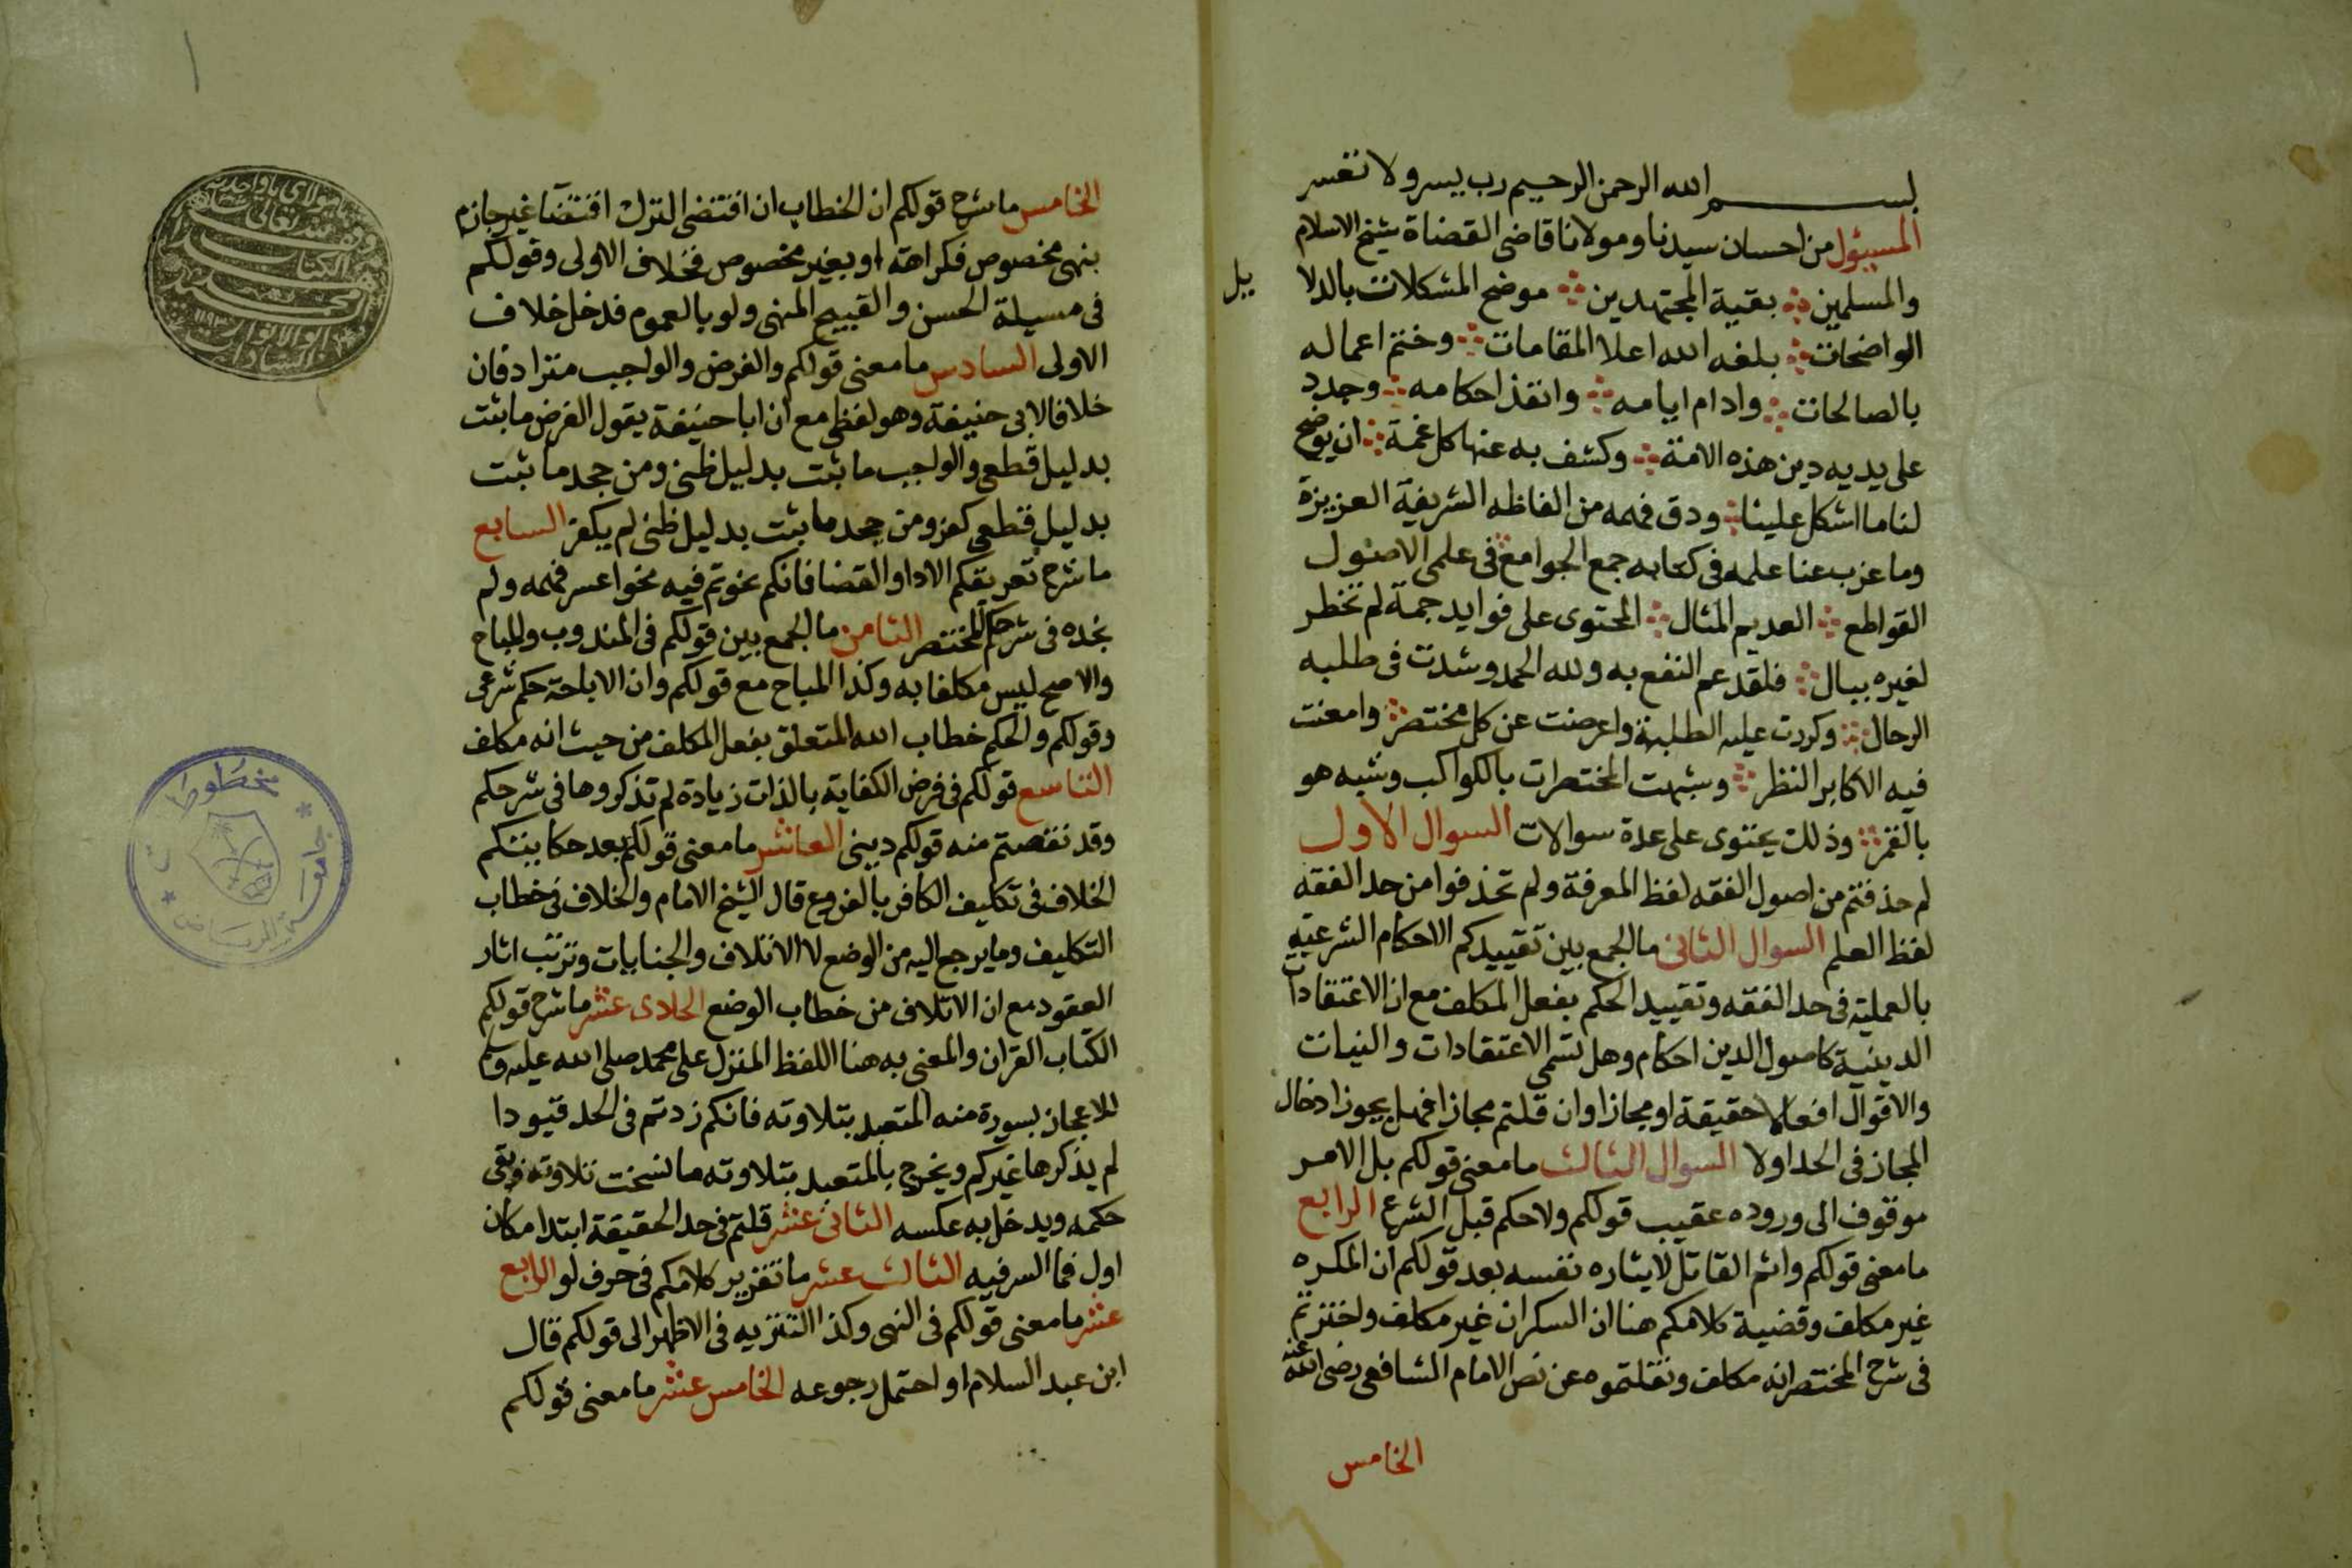 بسم الله الرحمن الرحيم رب يسر ولا تعسر
المسئول من احسان سيدنا ومولانا قاضى القضاة شيخ الاسلام
والمسلمين بقية المجتهدين موضح المشكلات بالدلا
يل
الواضحات بلغه الله اعلا المقامات وختم اعماله
بالصالحات وادام ايامه وانفذ احكامه وجدد
على يديه دين هذه الامة وكشف به عنها كل غمة ان يوضح
لنا ما اشكل علينا ودق فهمه من الفاظه الشريفة العزيزة
وما عزب عنا علمه فى كتابه جمع الجوامع فى علمى الاصول
القواطع العديم المثال المحتوى على فوايد جمة لم تخطر
لغيره ببال فلقد عم النفع به ولله الحمد وشدت فى طلبه
الرحال وكررت عليه الطلبة واعرضت عن كل مختصر وامعنت
فيه الاكابر النظر وشبهت المختصرات بالكواكب وشبه هو
بالقمر وذلك يحتوى على عدة سوالات السوال الاول
لم حذفتم من اصول الفقه لفظ المعرفة ولم تحذفوا من حد الفقه
لفظ العلم السوال الثانى ما الجمع بين تقييدكم الاحكام الشرعية
بالعملية فى حد الفقه وتقييد الحكم بفعل المكلف مع ان الاعتقادات
الدينية كاصول الدين احكام وهل تسمى الاعتقادات والنيات
والاقوال افعالا حقيقة او مجازا وان قلتم مجازا فهل يجوز ادخال
المجاز فى الحد اولا السوال الثالث ما معنى قولكم بل الامر
موقوف الى وروده عقيب قولكم ولا حكم قبل الشرع الرابع
ما معنى قولكم واثم القاتل لايثاره نفسه بعد قولكم ان المكره
غير مكلف وقضية كلامكم هنا ان السكران غير مكلف واخترتم
فى شرح المختصر انه مكلف ونقلتموه عن نص الامام الشافعى رضى الله عنه
الخامس
الخامس ما شرح قولكم ان الخطاب ان اقتضى الترك اقتضآ غير جازم
بنهى مخصوص فكراهة او بغير مخصوص فخلاف الاولى وقولكم
فى مسيلة الحسن والقبيح المنهى ولو بالعموم فدخل خلاف
الاولى السادس ما معنى قولكم والفرض والواجب مترادفان
خلافا لابى حنيفة وهو لفظى مع ان ابا حنيفة يقول الفرض ما ثبت
بدليل قطعى والواجب ما ثبت بدليل ظنى ومن جحد ما ثبت
بدليل قطعى كفر ومن جحد ما ثبت بدليل ظنى لم يكفر السابع
ما شرح تعريفكم الادا والقضا فانكم نحوتم فيه نحوا عسر فهمه ولم
نجده فى شرحكم للمختصر الثامن ما الجمع بين قولكم فى المندوب والمباح
والاصح ليس مكلفا به وكذا المباح مع قولكم وان الاباحة حكم شرعى
وقولكم والحكم خطاب الله المتعلق بفعل المكلف من حيث انه مكلف
التاسع قولكم فى فرض الكفاية بالذات زيادة لم تذكروها فى شرحكم
وقد نقصتم منه قولكم دينى العاشر ما معنى قولكم بعد حكايتكم
الخلاف فى تكليف الكافر بالفروع قال الشيخ الامام والخلاف فى خطاب
التكليف وما يرجع اليه من الوضع لا الاتلاف والجنايات وترتب اثار
العقود مع ان الاتلاف من خطاب الوضع الحادى عشر ما شرح قولكم
الكتاب القران والمعنى به هنا اللفظ المنزل على محمد صلى الله عليه وسلم
للاعجاز بسورة منه المتعبد بتلاوته فانكم زدتم فى الحد قيودا
لم يذكرها غيركم ويخرج بالمتعبد بتلاوته ما نسخت تلاوته وبقى
حكمه ويدخل به عكسه الثانى عشر قلتم فى حد الحقيقة ابتدا مكان
اول فما السر فيه الثالث عشر ما تقرير كلامكم فى حرف لو الرابع
عشر ما معنى قولكم فى النهى وكذا التنزيه فى الاظهر الى قولكم قال
ابن عبد السلام او احتمل رجوعه الخامس عشر ما معنى قولكم
مخطوطات
جامعة الرياض